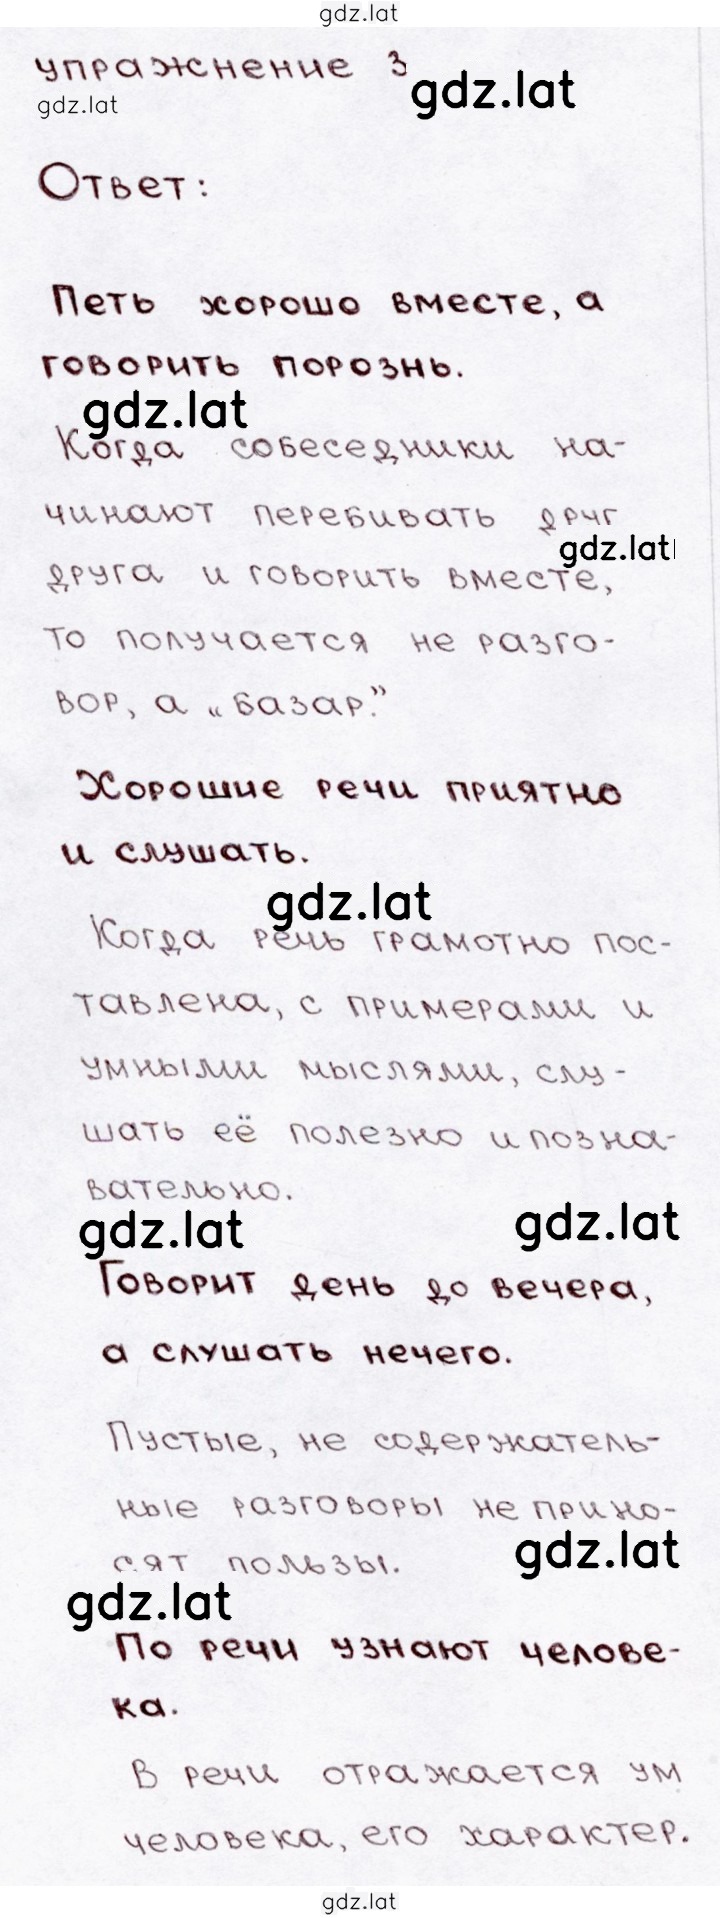 gdz.lat
упражнение 3
gdz.lat
gdz.lat
Ответ:
Петь хорошо вместе, а
говорить порознь.
gdz.lat
Когда собеседники на-
чинают перебивать друг
gdz.lat
друга и говорить вместе,
то получается не разго-
вор, а „базар.”
Хорошие речи приятно
и слушать.
gdz.lat
Когда речь грамотно пос-
тавлена, с примерами и
умными мыслями, слу-
шать её полезно и позна-
вательно.
gdz.lat
gdz.lat
Говорит день до вечера,
а слушать нечего.
Пустые, не содержатель-
ные разговоры не прино-
gdz.lat
сят пользы.
gdz.lat
По речи узнают челове-
ка.
В речи отражается ум
человека, его характер.
gdz.lat